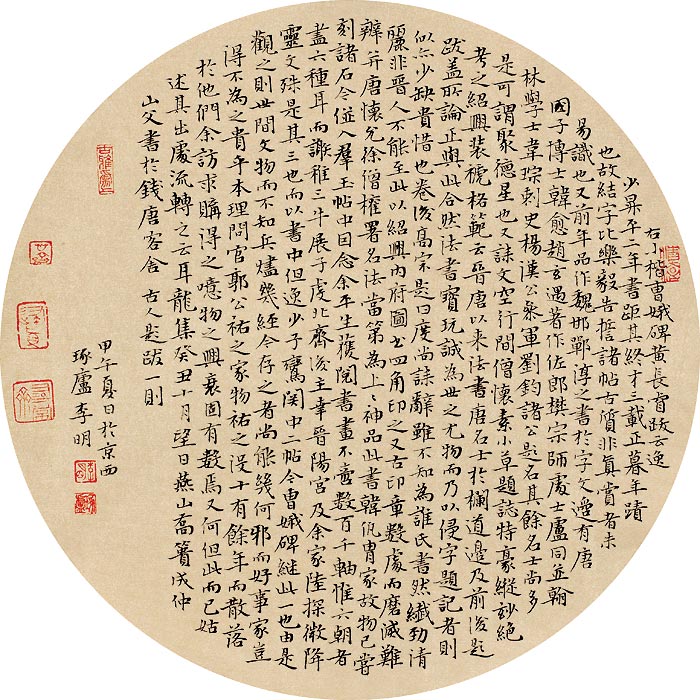 右小楷曹娥碑黄長睿跋云逸
少昇平二年書距其終才三載正暮年蹟
也故結字比樂毅告誓諸帖古質非真賞者未
易識也又前年品作魏邯鄲淳之書於字文邊有唐
國子博士韓愈趙玄遇著作佐郎樊宗師處士盧同並翰
林學士韋琮刺史楊漢公參軍劉鈞諸公題名其餘名士尚多
是可謂聚德星也又誄文空行間僧懷素小草題誌特豪縱妙絶
考之紹興裝褫格範云晉唐以來法書唐名士於欄道邊及前後題
跋蓋所論正與此合然法書寶玩誠為世之尤物而乃以侵字題記者則
似亦少缺貴惜也卷後高宗題曰度尚誄辭雖不知為誰氏書然纖勁清
麗非晉人不能至此以紹興内府圖書四角印之又古印章數處而磨滅難
辨并唐懷充徐僧權署名法當第為上上神品此書韓侂冑家故物已嘗
刻諸石今從入羣玉帖中因念余平生獲閲書畫不啻數百千軸惟六朝者
盡六種耳而謝稚三牛展子虔北齊後主幸晉陽宮及余家陸探微降
靈文殊是其三也而以書中但逸少子鸞閑中二帖今曹娥碑繼此一也由是
觀之則世間文物而不知兵燼幾經今存之者尚能幾何邪而好事家豈
得不為之貴乎本理問官郭公祐之家物祐之没十有餘年而散落
於他們余訪求購得之噫物之興衰固有數焉又何但此而已姑
述其出處流轉之云耳龍集癸丑十月望日燕山喬簣成仲
山父書於錢唐客舍 古人題跋一則
甲午夏日於京西
琢廬李明